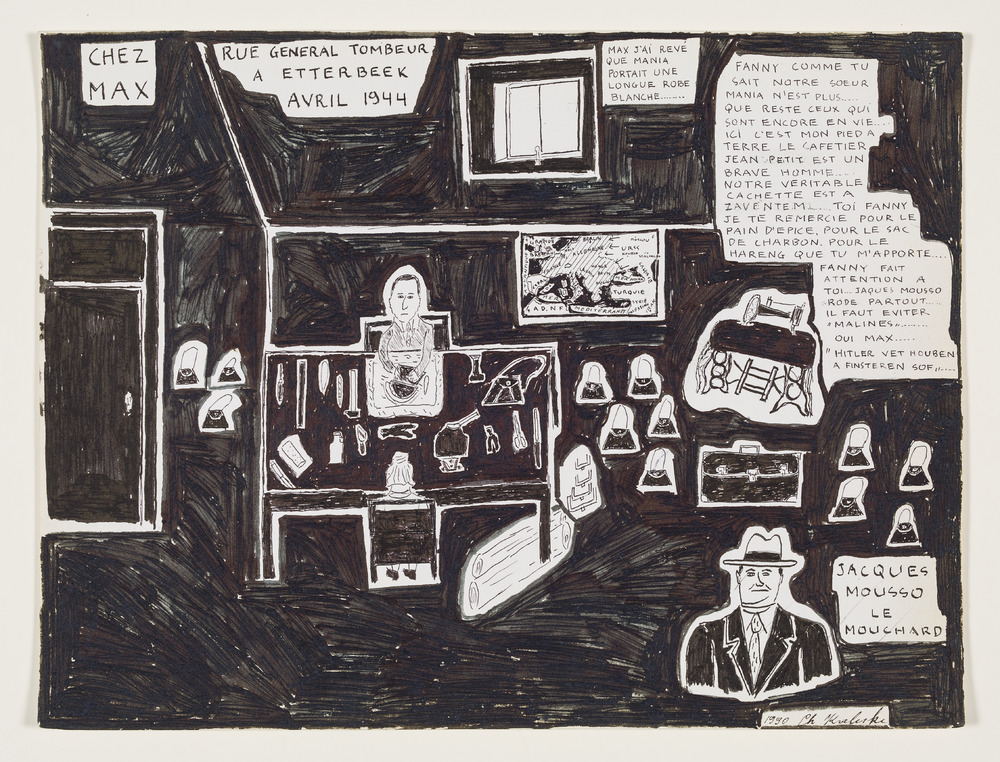 CHEZ
MAX
RUE GENERAL TOMBEUR
A ETTERBEEK
AVRIL 1944
MAX J'AI REVÉ
QUE MANIA
PORTAIT UNE
LONGUE ROBE
BLANCHE........
FANNY COMME TU
SAIT NOTRE SOEUR
MANIA N'EST PLUS.....
QUE RESTE CEUX QUI
SONT ENCORE EN VIE....
ICI C'EST MON PIED A
TERRE LE CAFETIER
JEAN PETIT EST UN
BRAVE HOMME.....
NOTRE VERITABLE
CACHETTE EST A
ZAVENTEM.....TOI FANNY
JE TE REMERCIE POUR LE
PAIN D'EPICE, POUR LE SAC
DE CHARBON, POUR LE
HARENG QUE TU M'APPORTE....
FANNY FAIT
ATTENTION A
TOI... JAQUES MOUSSO
RODE PARTOUT....
IL FAUT EVITER
"MALINES".......
OUI MAX.....
"HITLER VET HOUBEN
A FINSTEREN SOF".....
BERLIN
URSS
TURQUIE
MEDITERRANE
JACQUES
MOUSSO
LE
MOUCHARD
1990